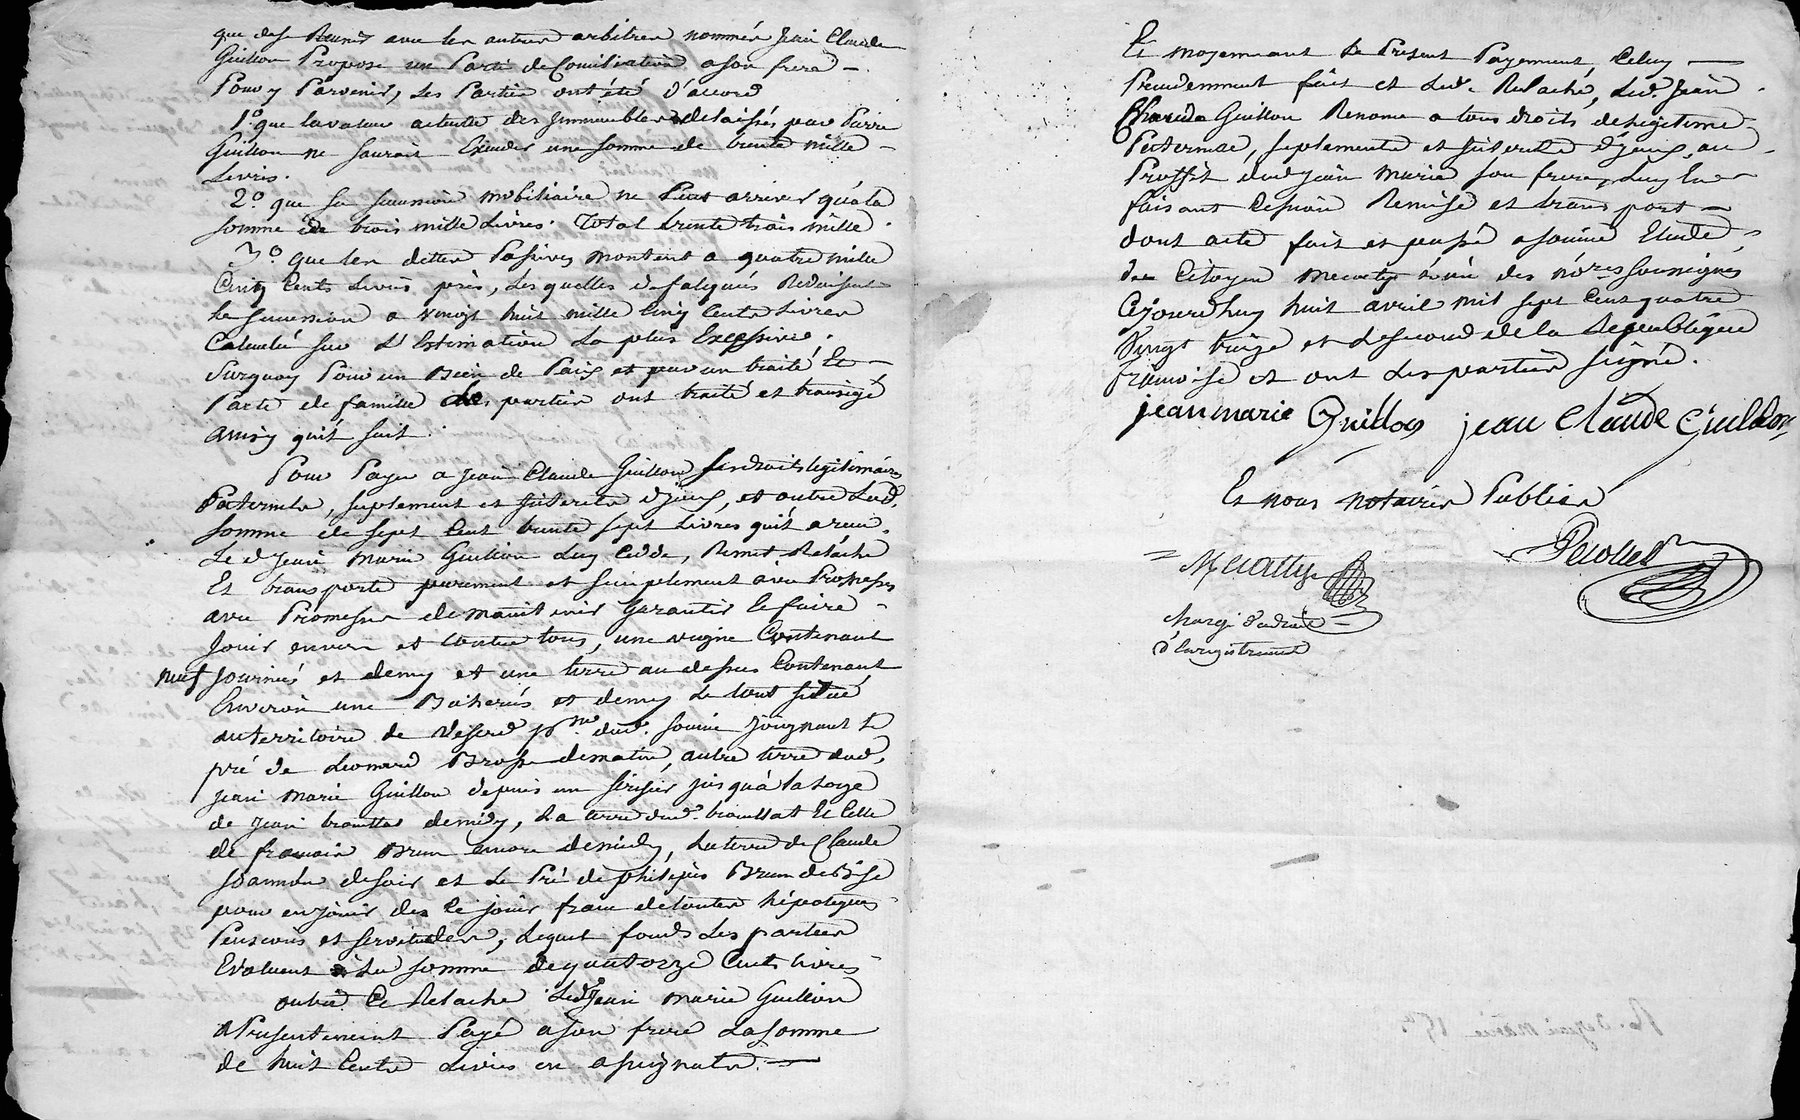 que dess Reunis avec les autres arbitres nommés Jean Claude
Guillon Propose un Parti de Conciliation a son frere –
Pour y Parvenir, Les Parties ont été d'accord
1o que la valeur actuelle des jmmeubles delaissés par Pierre
Guillon ne sauroit Exceder une somme de trente mille –
Livres.
2o que la succession mobiliaire ne Peut arriver qu'a la
somme de trois mille Livres. Total trente trois mille.
3o que les dettes Passives montent a quatre mille
Cinq Cents Livres près, Les quelles defalquées Reduisent
la succession a vingt huit mille Cinq Cents Livres
Calculée sur L'Estimation La plus Excessive.
Surquoy Pour un Bien de Paix et pour un traité Et –
Pacte de famille les parties ont traité et transigé
ainsy qu'il suit.
Pour Payer a Jean Claude Guillon ses droits legitimaires
Paternels, suplement et Interets d'jceux, et outre Lad.
somme de sept Cent trente sept Livres qu'il a reçu.
Le d Jean Marie Guillon Luy Cedde, Remet Relâche
Et transporte purement et simplement avec Promesses
avec Promesse de maintenir Garantir Et faire –
Jouir envers et Contre tous, une vigne Contenant
neuf Journées et demy et une terre au dessus Contenant
Environ une Bicherée et demy Le tout situé
au territoire de joignant Le
pré de Leonard Brosse de matin, autre terre dud.
Jean Marie Guillon depuis un serisier jusqu'à la haye
de Jean trouillat demidy, La terre dud. trouillat Et Celle
de francois Brun encore demidy, La terre de Claude
de soir et Le Pré de philipes Brun de Bise
pour en jouir des Ce jour franc de toutes hipoteques
Pensions et servitudes, Lequel fonds Les parties
Evaluent à La somme de quatorze Cents Livres
outre Ce Relache Led. Jean Marie Guillon
a Presentement Payé a son frere La somme
de huit Cents Livres en assignats. –
Et moyennant Le Present Payement, Celuy –
Precedemment fait et Led. Relaché, Led. Jean
Claude Guillon Renonce a tous droits de legitime
Paternelle, suplement et Interets d'jceux, au
Proffit dud Jean Marie son frere, Luy En
faisant Cession Remise et transport –
dont acte fait et passé a Etude
du Citoyen Mecatty l'un des nores soussignés
Cejourdhuy huit avril mil sept Cent quatre
Vingt treize et Le second de la Republique
françoise et ont Les parties signé.
jean marie Guillon jean Claude Guillon
Et nous notaires Publics
Mecatty
charge d'
d'Enregistrement